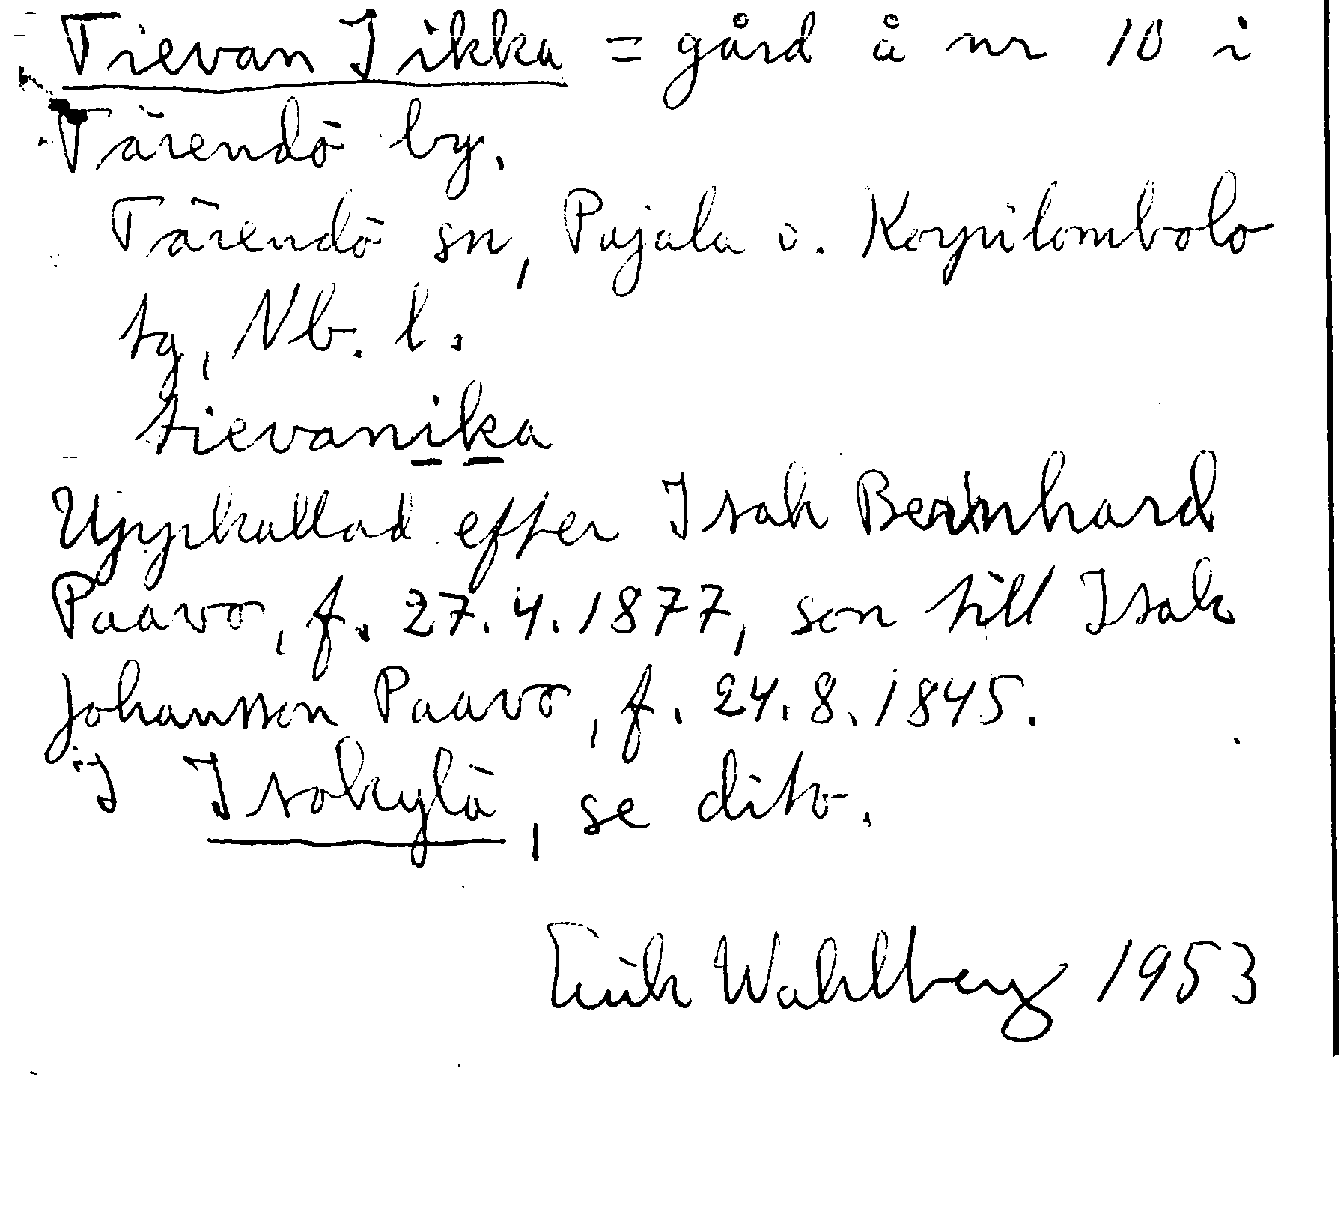 Tievan Iikka = gård å nr 10 i
Tärendö by.
Tärendö sn, Pajala o. Korpilombolo
tg, Nb. l.
tievani̲k̲a
Uppkallad efter Isak Bernhard
Paavo, f. 27.4.1877, son till Isak
Johansson Paavo, f. 24.8.1845.
I Isokylä, se dito.
Erik Wahlberg 1953